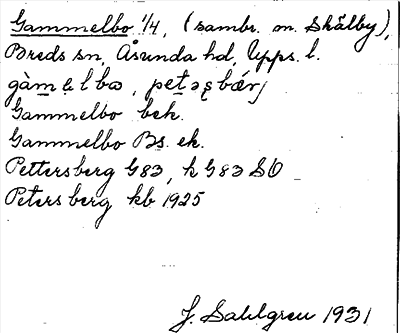 Gammelbo 1/4, (sambr. m. Skälby),
Breds sn, Åsunda hd, Upps. l.
gàmelbo, petəşbærj
Gammelbo bek.
Gammelbo Bs. ek.
Pettersberg G83, k G83 SO
Petersberg kb 1925
J. Sahlgren 1931